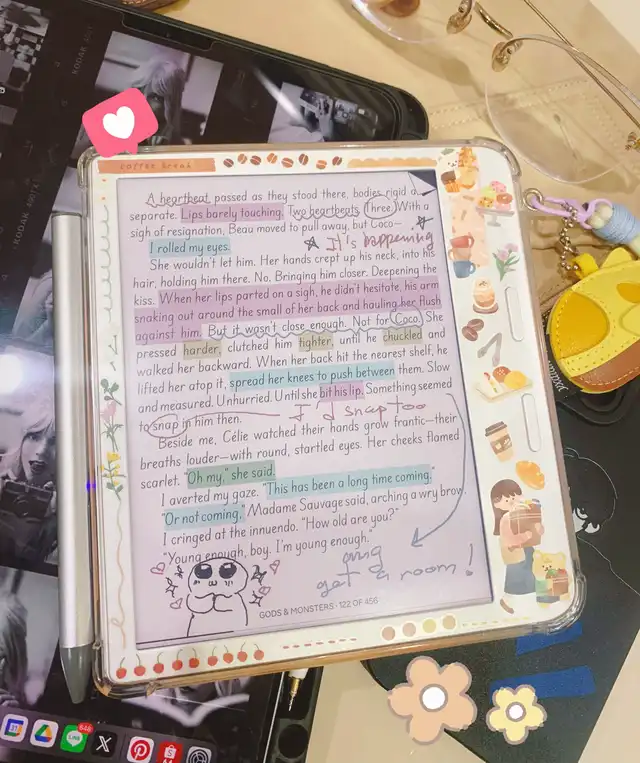 KODAK
coffee break
A heartbeat passed as they stood there, bodies rigid a
separate. Lips barely touching. Two heartbeats. Three. With a
sigh of resignation, Beau moved to pull away, but Coco—
I rolled my eyes.
It's happening
She wouldn't let him. Her hands crept up his neck, into his
hair, holding him there. No. Bringing him closer. Deepening the
kiss. When her lips parted on a sigh, he didn't hesitate, his arm
snaking out around the small of her back and hauling her flush
against him. But it wasn't close enough. Not for Coco. She
pressed harder, clutched him tighter, until he chuckled and
walked her backward. When her back hit the nearest shelf, he
lifted her atop it, spread her knees to push between them. Slow
and measured. Unhurried. Until she bit his lip. Something seemed
to snap in him then.
I'd snap too
Beside me, Célie watched their hands grow frantic—their
breaths louder—with round, startled eyes. Her cheeks flamed
scarlet. "Oh my," she said.
I averted my gaze. "This has been a long time coming."
"Or not coming," Madame Sauvage said, arching a wry brow.
I cringed at the innuendo. "How old are you?"
"Young enough, boy. I'm young enough."
omg
get a room!
GODS & MONSTERS · 122 OF 456
31
LINE
648
X